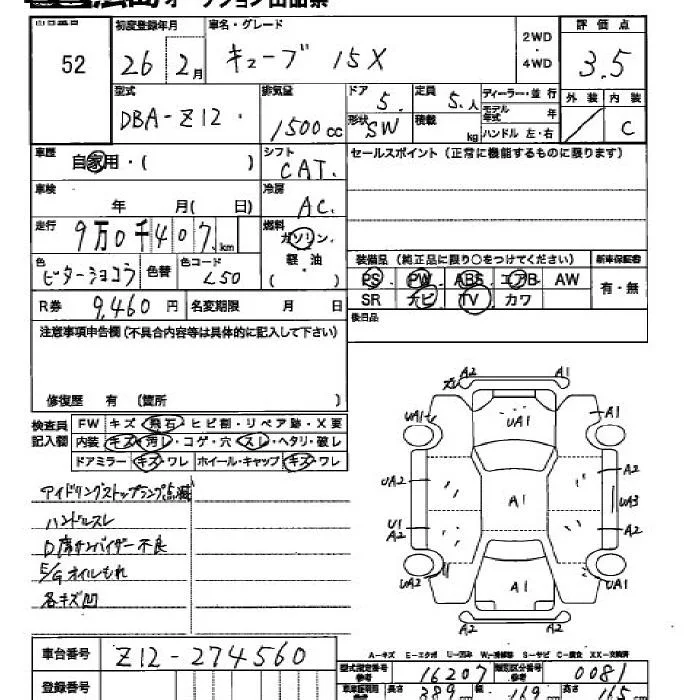 オークション出品票
出品番目 初度登録年月 車名・グレード 2WD・4WD 評価点
52 26 2月 キューブ 15X 3.5
型式 排気量 ドア 定員 ディーラー・並行 外装 内装
DBA-Z12 1500cc 5. 5.人 モデル年式 年
形状 SW 積載 kg ハンドル 左・右 C
車歴 自家用・( ) シフト CAT. セールスポイント(正常に機能するものに限ります)
車検 年 月( 日) 冷房 AC.
走行 9万0千407km 燃料 ガソリン・軽油 ( ) 装備品(純正品に限り○をつけてください) 新車保証書
色 ビターショコラ 色替 色コード L50 PS PW ABS エアB AW 有・無
R券 9,460円 名変期限 月 日 SR ナビ TV カワ
注意事項申告欄(不具合内容等は具体的に記入して下さい) 後日品
修復歴 有 (箇所 )
検査員記入欄 FW キズ・飛石・ヒビ割・リペア跡・X要
内装 キズ・汚レ・コゲ・穴・スレ・ヘタリ・破レ
ドアミラー キズ・ワレ ホイール・キャップ キズ・ワレ
アイドリングストップランプ点滅
ハンドルスレ
D席サンバイザー不良
E/Gオイルもれ
各キズ凹
A2 A1
UA1 UA1 A1
UA2 A2
A1 UA3
U1 A2 A2
UA2 A1 UA1
A2 A2
A-キズ E-エクボ U-凹み W-補修跡 S-サビ C-腐食 XX-交換済
車台番号 Z12-274560
型式指定番号 参考 16207 類別区分番号 参考 0081
登録番号
車庫証明用 長さ 389cm 幅 169cm 高さ 165cm